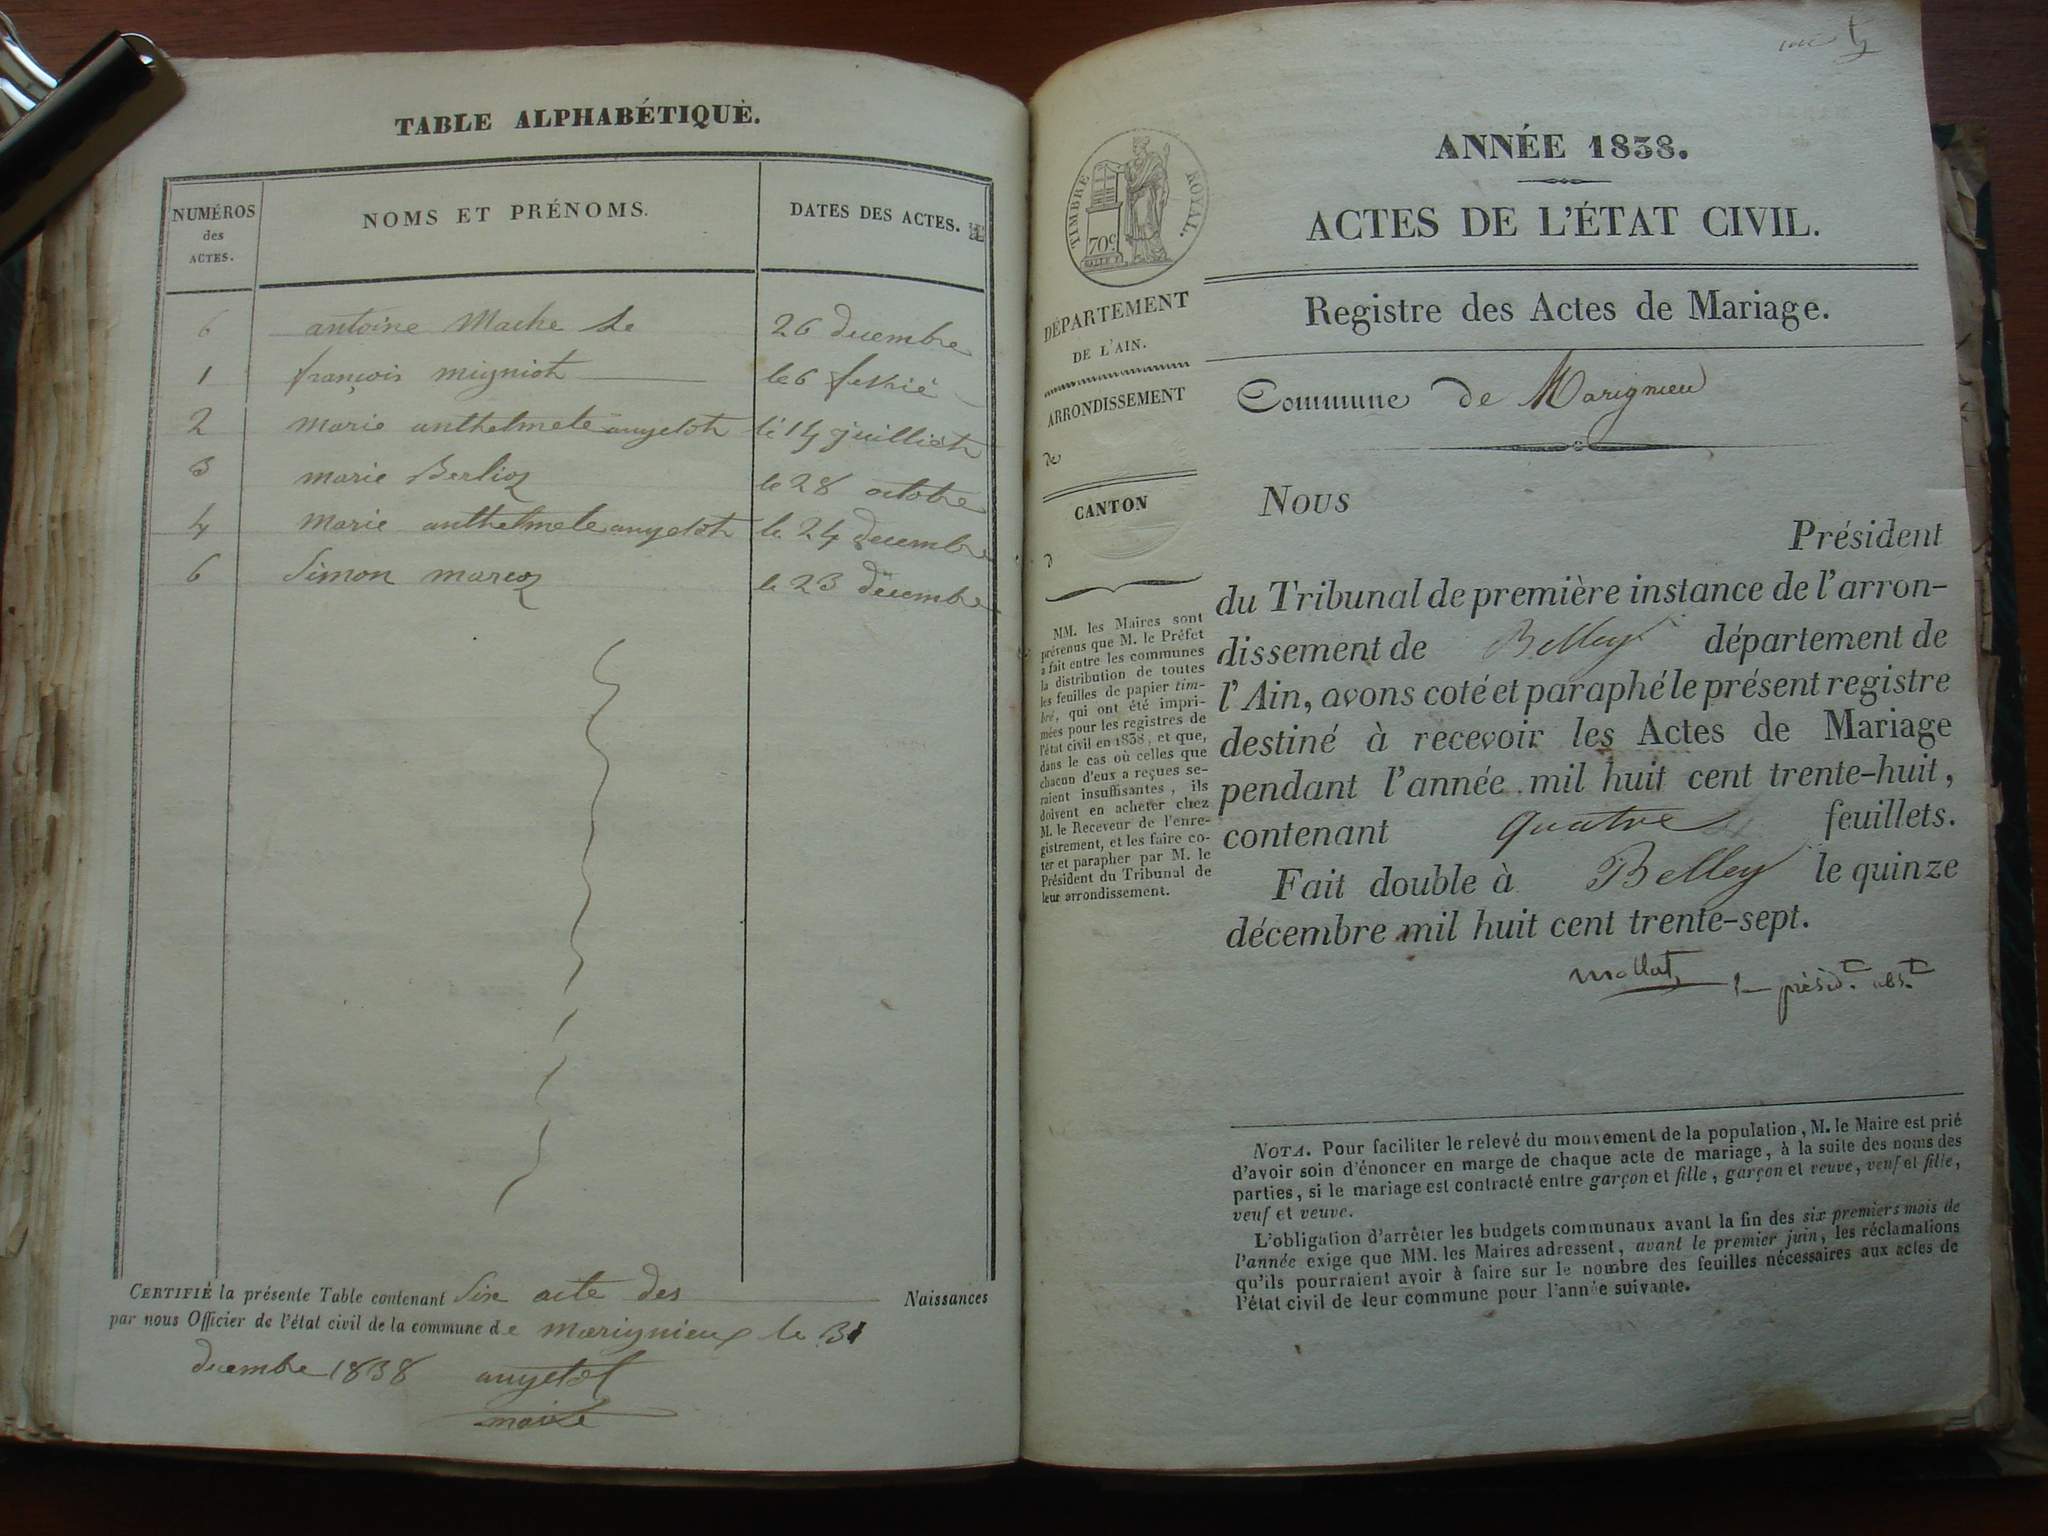 TABLE ALPHABÉTIQUE.
NUMÉROS des ACTES.
NOMS ET PRÉNOMS.
DATES DES ACTES.
6 antoine Mache le 26 decembre
1 françois migniot le 6 fevrié
2 marie anthelmete angelot le 14 juilliet
3 marie Berlioz le 28 octobre
4 marie anthelmete angelot le 24 decembre
6 Simon marcoz le 23 decembre
CERTIFIÉ la présente Table contenant Six acte des Naissances
par nous Officier de l'état civil de la commune de marignieux le 31
decembre 1838 angelot
maire
TIMBRE ROYAL.
70c
DÉPARTEMENT
DE L'AIN.
ARRONDISSEMENT
de
CANTON
d
MM. les Maires sont
prévenus que M. le Préfet
a fait entre les communes
la distribution de toutes
les feuilles de papier tim-
bré, qui ont été impri-
mées pour les registres de
l'état civil en 1838, et que,
dans le cas où celles que
chacun d'eux a reçues se-
raient insuffisantes, ils
doivent en acheter chez
M. le Receveur de l'enre-
gistrement, et les faire co-
ter et parapher par M. le
Président du Tribunal de
leur arrondissement.
ANNÉE 1838.
ACTES DE L'ÉTAT CIVIL.
Registre des Actes de Mariage.
Commune de Marignieu
Nous
Président
du Tribunal de première instance de l'arron-
dissement de Belley département de
l'Ain, avons coté et paraphé le présent registre
destiné à recevoir les Actes de Mariage
pendant l'année mil huit cent trente-huit,
contenant quatre feuillets.
Fait double à Belley le quinze
décembre mil huit cent trente-sept.
Mollat présid.t abs.t
NOTA. Pour faciliter le relevé du mouvement de la population, M. le Maire est prié
d'avoir soin d'énoncer en marge de chaque acte de mariage, à la suite des noms des
parties, si le mariage est contracté entre garçon et fille, garçon et veuve, veuf et fille,
veuf et veuve.
L'obligation d'arrêter les budgets communaux avant la fin des six premiers mois de
l'année exige que MM. les Maires adressent, avant le premier juin, les réclamations
qu'ils pourraient avoir à faire sur le nombre des feuilles nécessaires aux actes de
l'état civil de leur commune pour l'année suivante.